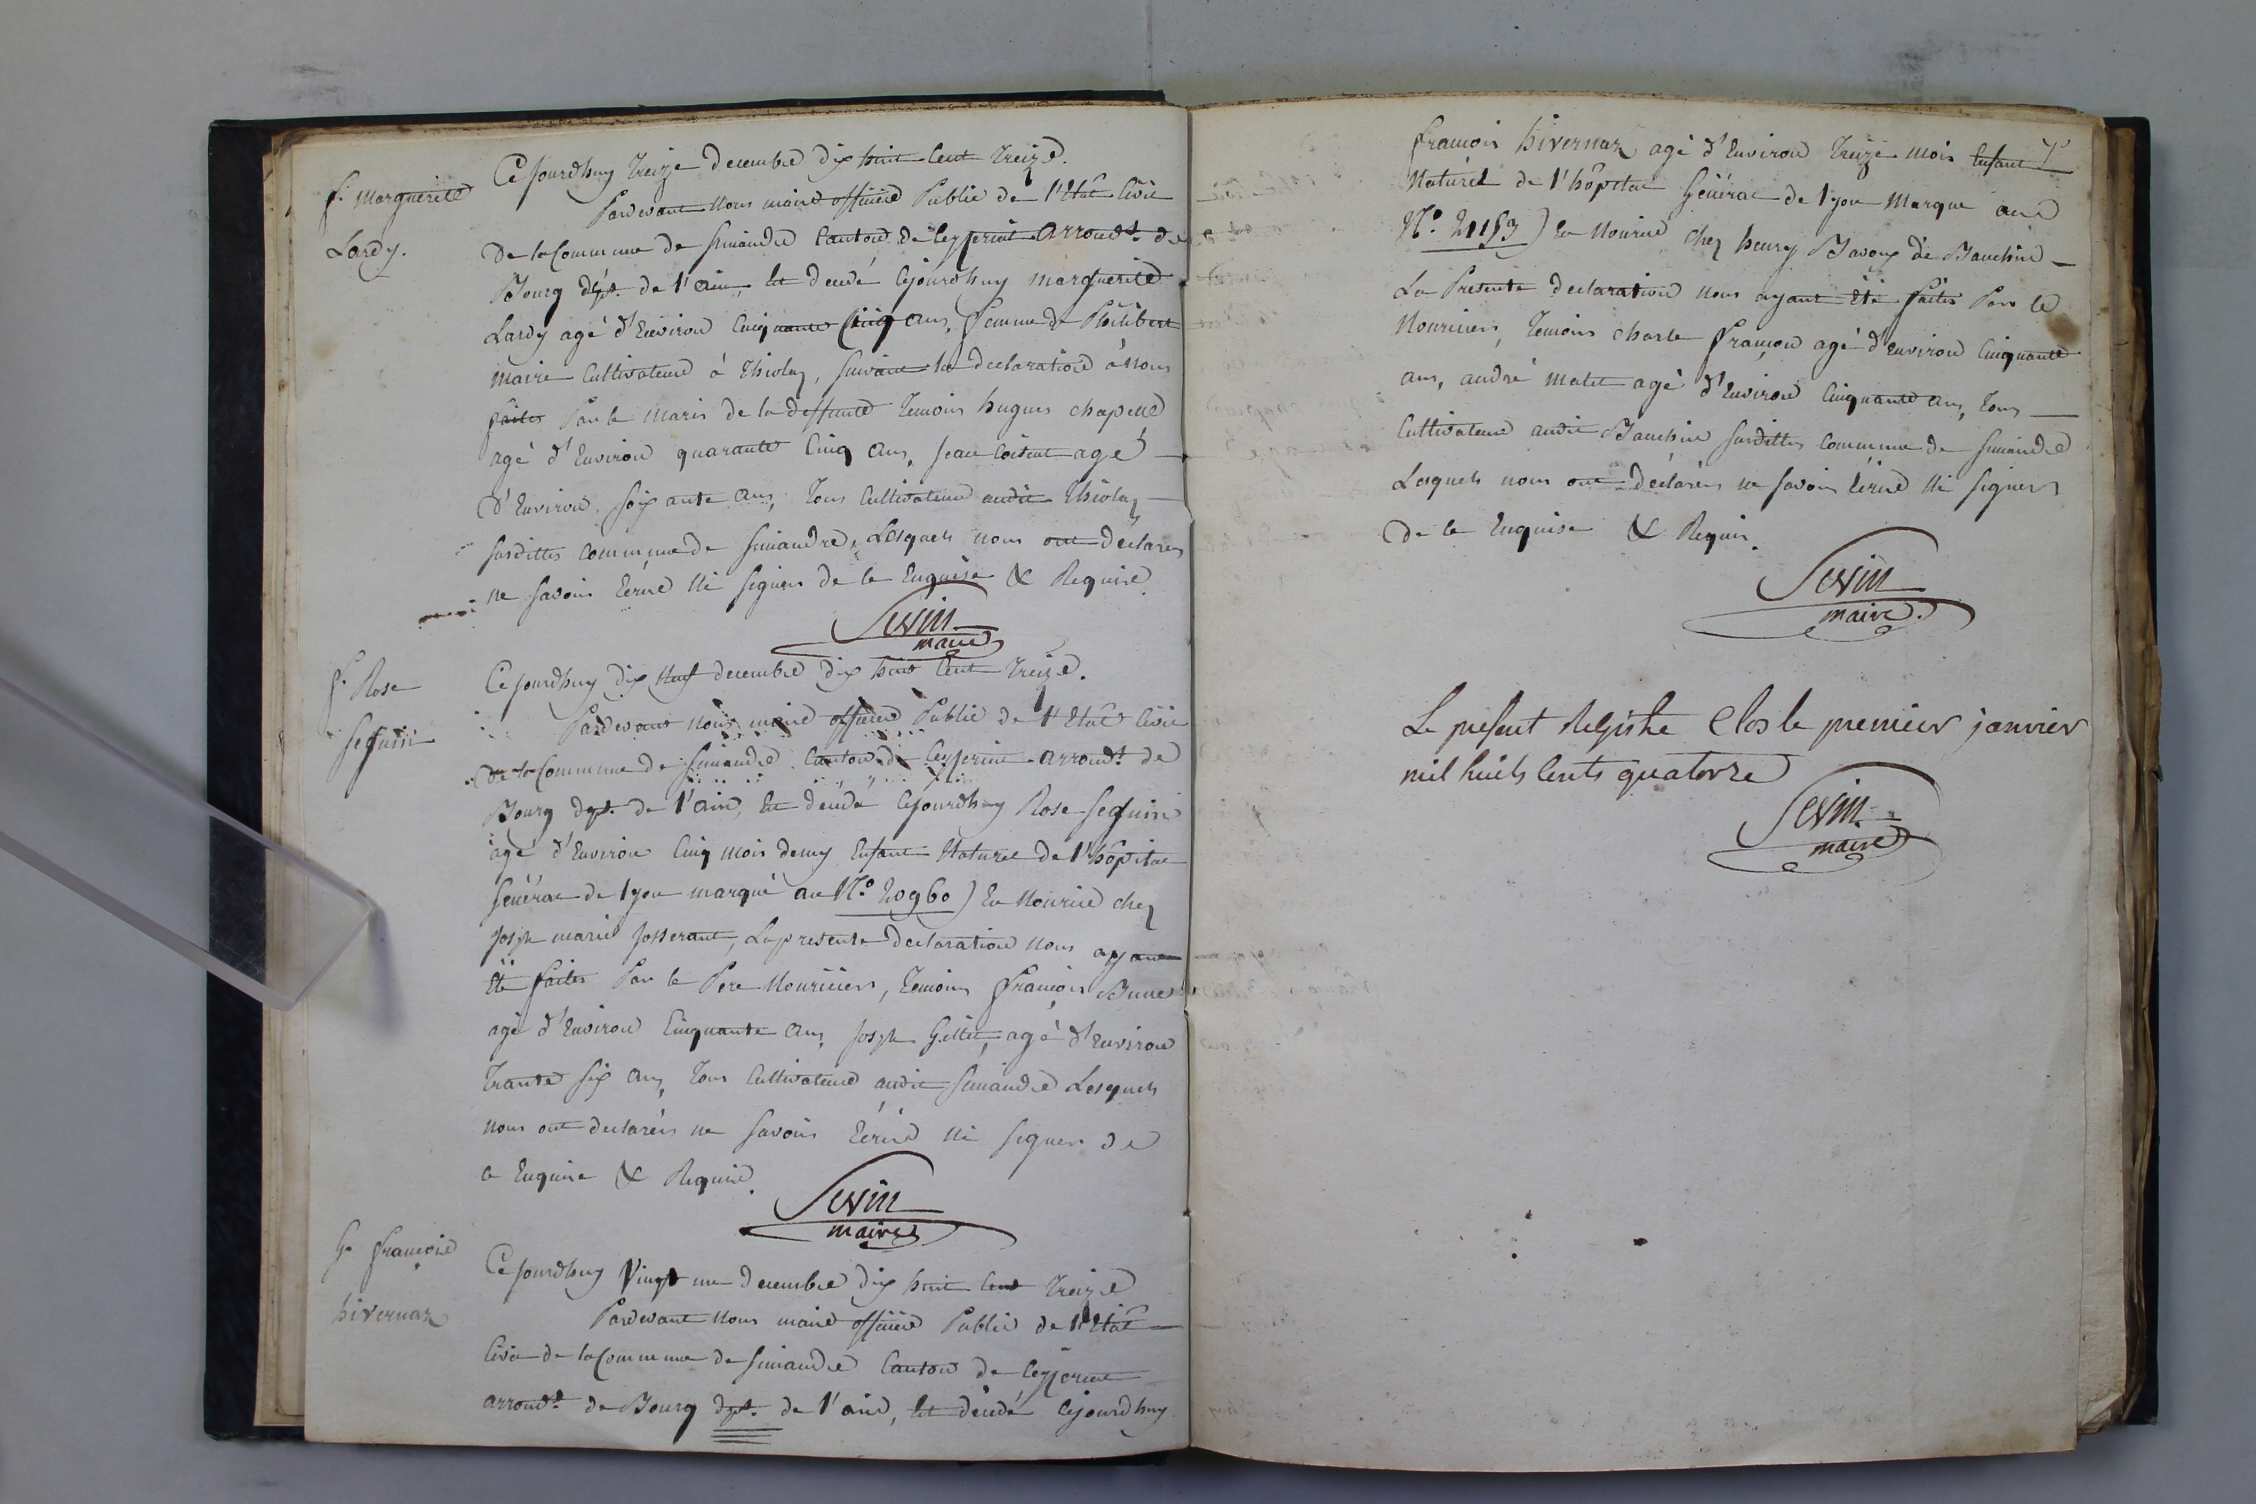 f. Marguerite
Lardy.
Cejourdhuy treize decembre dix huit Cent treize.
Pardevant Nous maire officiere Public de l'Etat Civil
de la Commune de Simandre Canton de Ceyzeriat arrondt. de
Bourg dpt. de l'ain, Est decedé Cejourdhuy Marguerite
Lardy agé d'Environ Cinquante Cinq ans, femme de Philibert
maire Cultivateur à Thiolay, suivant la declaration à nous
faites Par le Maris de la deffunte Temoins hugues chapelle
agé d'Environ quarante Cinq ans, Jean agé
d'Environ soixante ans, Tous Cultivateurs audit Thiolay
susdittes commune de Simandre, Lesquels nous ont declarés
ne savoir Ecrire Ni signer de ce Enquise & Requise.
Sevin
maire
f. Rose
Seguin
Cejourdhuy dix Neuf decembre dix huit Cent treize.
Pardevant nous maire officiere Public de l'Etat Civil
de la Commune de Simandre Canton de Ceyzeriat arrondt. de
Bourg dpt. de l'ain, Est decedé Cejourdhuy Rose Seguin
agé d'Environ Cinq mois demy Enfant Naturel de l'hôpital
Général de lyon marqué au N.º 20960) En Nourice chez
Josph marie Josserant, La presente declaration nous ayant
Eté faites Par le Pere Nouricier, Temoins François
agé d'Environ Cinquante ans, Josph Gillet, agé d'Environ
Trante six ans, Tous Cultivateurs audit Simandre Lesquels
nous ont declarés ne savoir Ecrire Ni signer de
ce Enquise & Requise.
Sevin
maire
G. François
hivernar
Cejourdhuy Vingt un decembre dix huit Cent treize
Pardevant Nous maire officiere Public de l'Etat
Civil de la Commune de Simandre Canton de Ceyzeriat
arrondt. de Bourg dpt. de l'ain, Est decedé Cejourdhuy
François hivernar agé d'Environ Treize mois Enfant
Naturel de l'hôpital Général de lyon Marque au
N.º 21153) En Nourice chez henry Bavoux de Banchin
La Presente declaration nous ayant Eté faites Par le
Nouriciers, Temoins charle François agé d'Environ Cinquante
ans, andré matet agé d'Environ Cinquante ans, Tous
Cultivateurs audit Banchin susdittes commune de Simandre
Lesquels nous ont déclarés ne savoir Ecrire Ni signer
de ce Enquise & Requis.
Sevin
maire.
Le présent Registre Clos le premier janvier
mil huits Cents quatorze
Sevin
maire